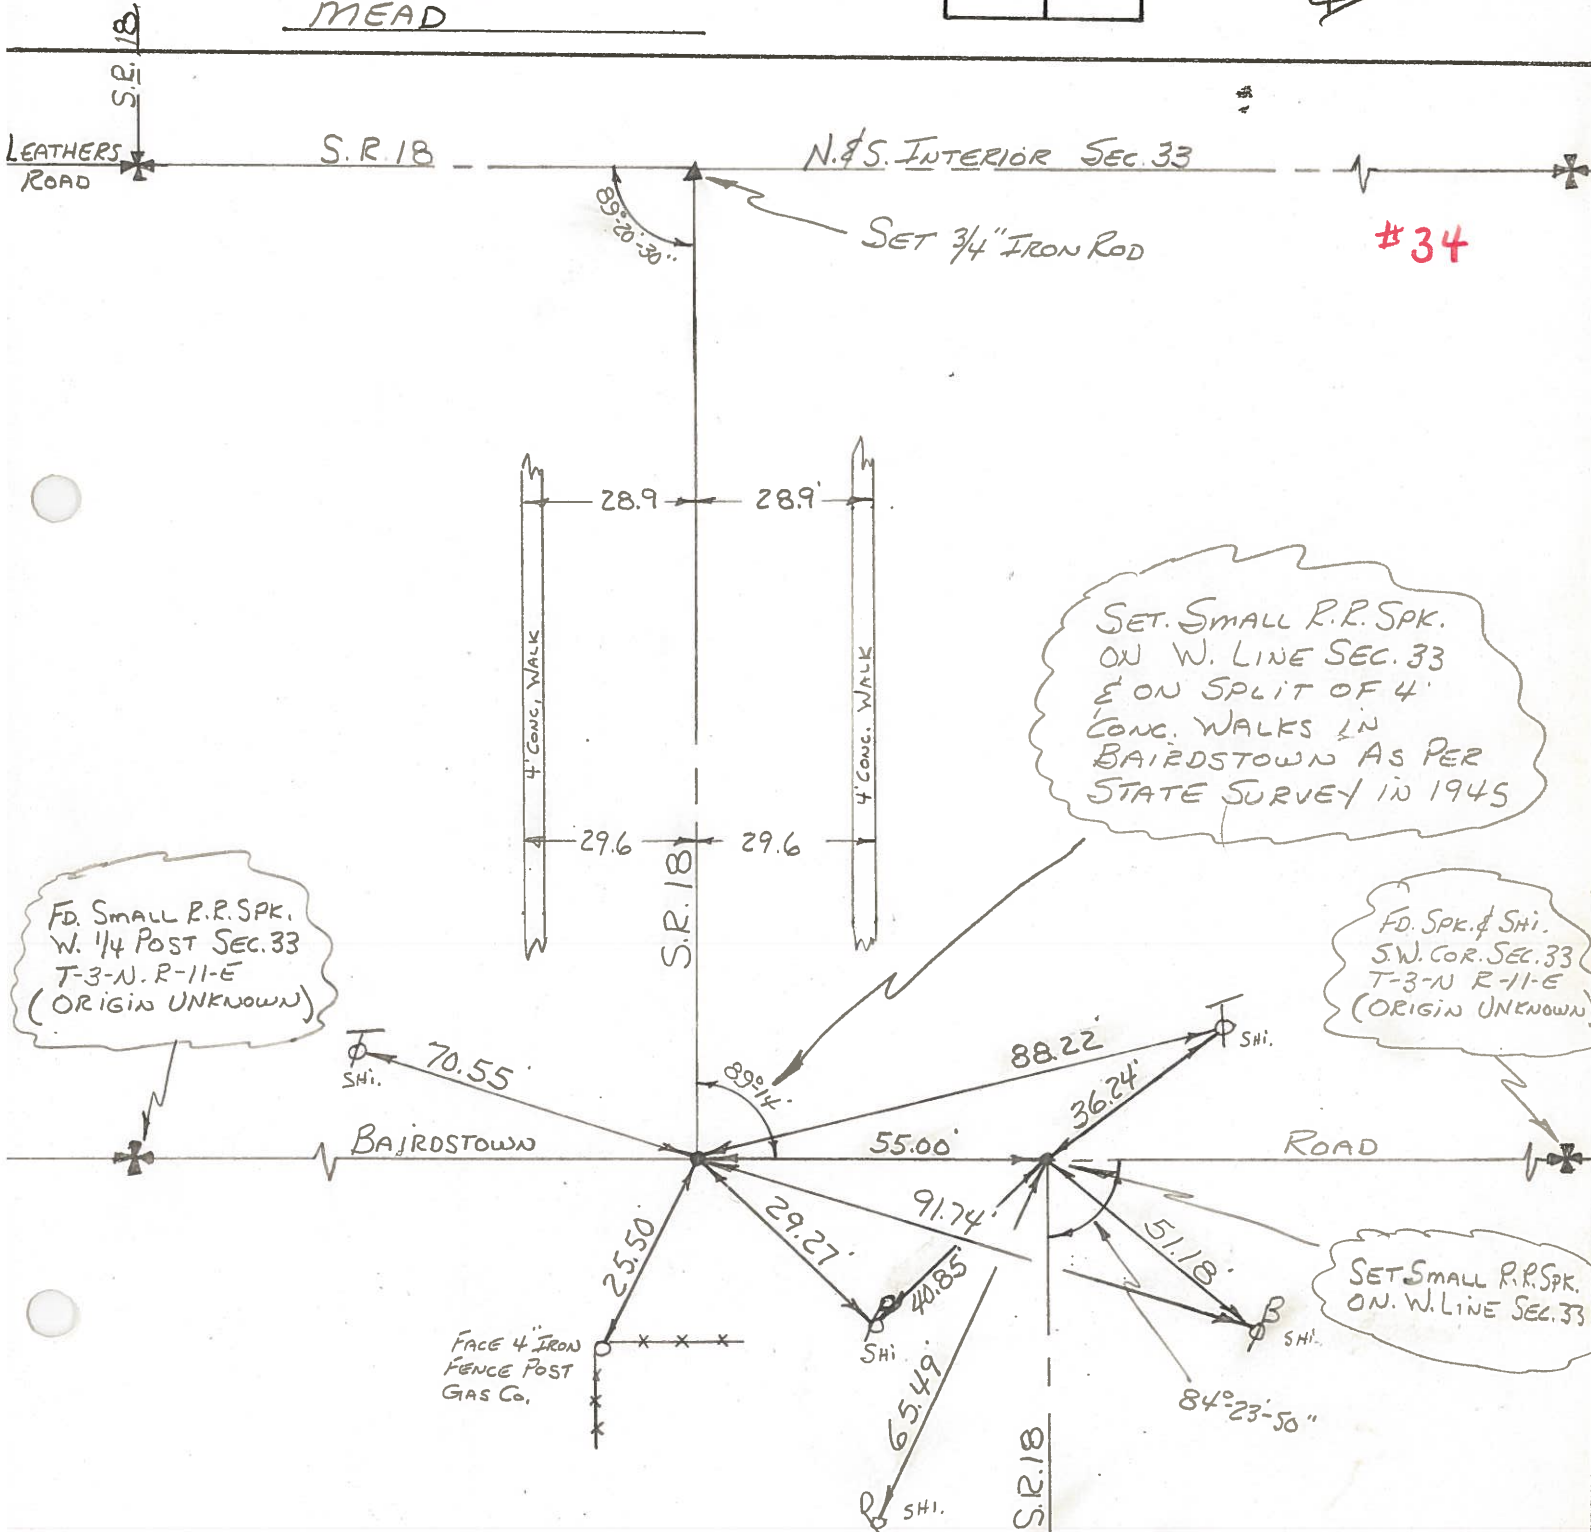 MEAD
S.R. 18
S.R. 18
LEATHERS
ROAD
N.&S. INTERIOR SEC. 33
89°-20'-30"
SET 3/4" IRON ROD
#34
28.9
28.9'
4' CONC. WALK
4' CONC. WALK
SET. SMALL R.R. SPK.
ON W. LINE SEC. 33
& ON SPLIT OF 4'
CONC. WALKS IN
BAIRDSTOWN AS PER
STATE SURVEY IN 1945
29.6
29.6
S.R. 18
FD. SMALL R.R. SPK.
W. 1/4 POST SEC. 33
T-3-N. R-11-E
(ORIGIN UNKNOWN)
FD. SPK. & SHI.
S.W. COR. SEC. 33
T-3-N R-11-E
(ORIGIN UNKNOWN)
SHI.
70.55'
88.22'
SHI.
36.24'
89°-14'
BAIRDSTOWN
55.00'
ROAD
25.50'
29.27'
91.74'
40.85
51.18'
SET SMALL R.R. SPK.
ON. W. LINE SEC. 33
FACE 4" IRON
FENCE POST
GAS CO.
SHI.
SHI.
65.49'
84°-23'-50"
S.R. 18
SHI.